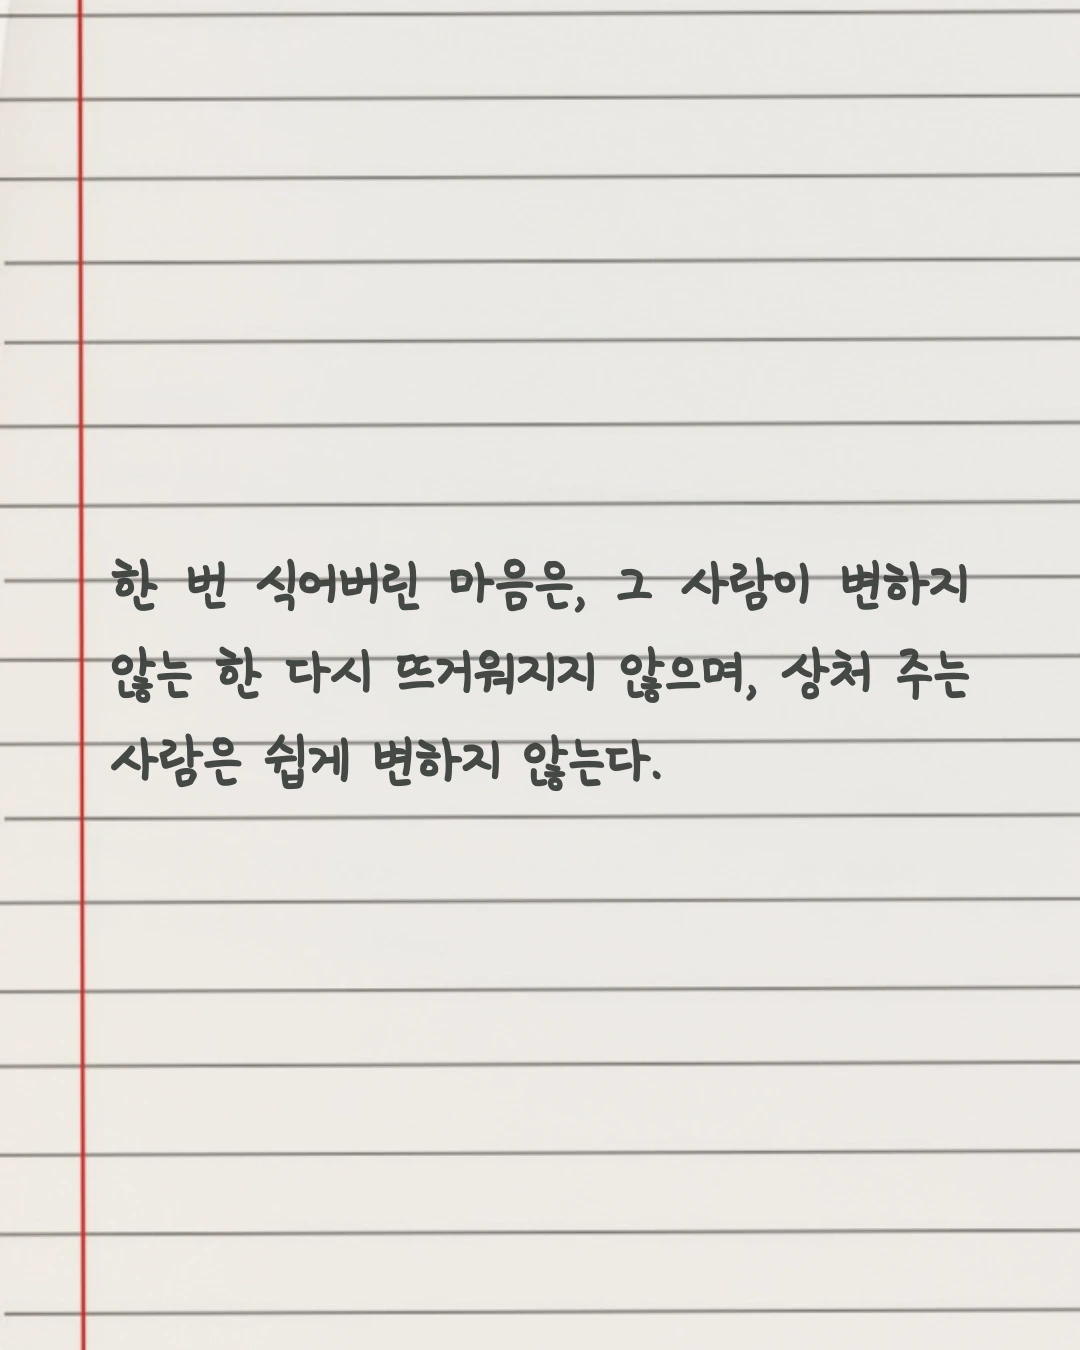 한 번 식어버린 마음은, 그 사람이 변하지
않는 한 다시 뜨거워지지 않으며, 상처 주는
사람은 쉽게 변하지 않는다.